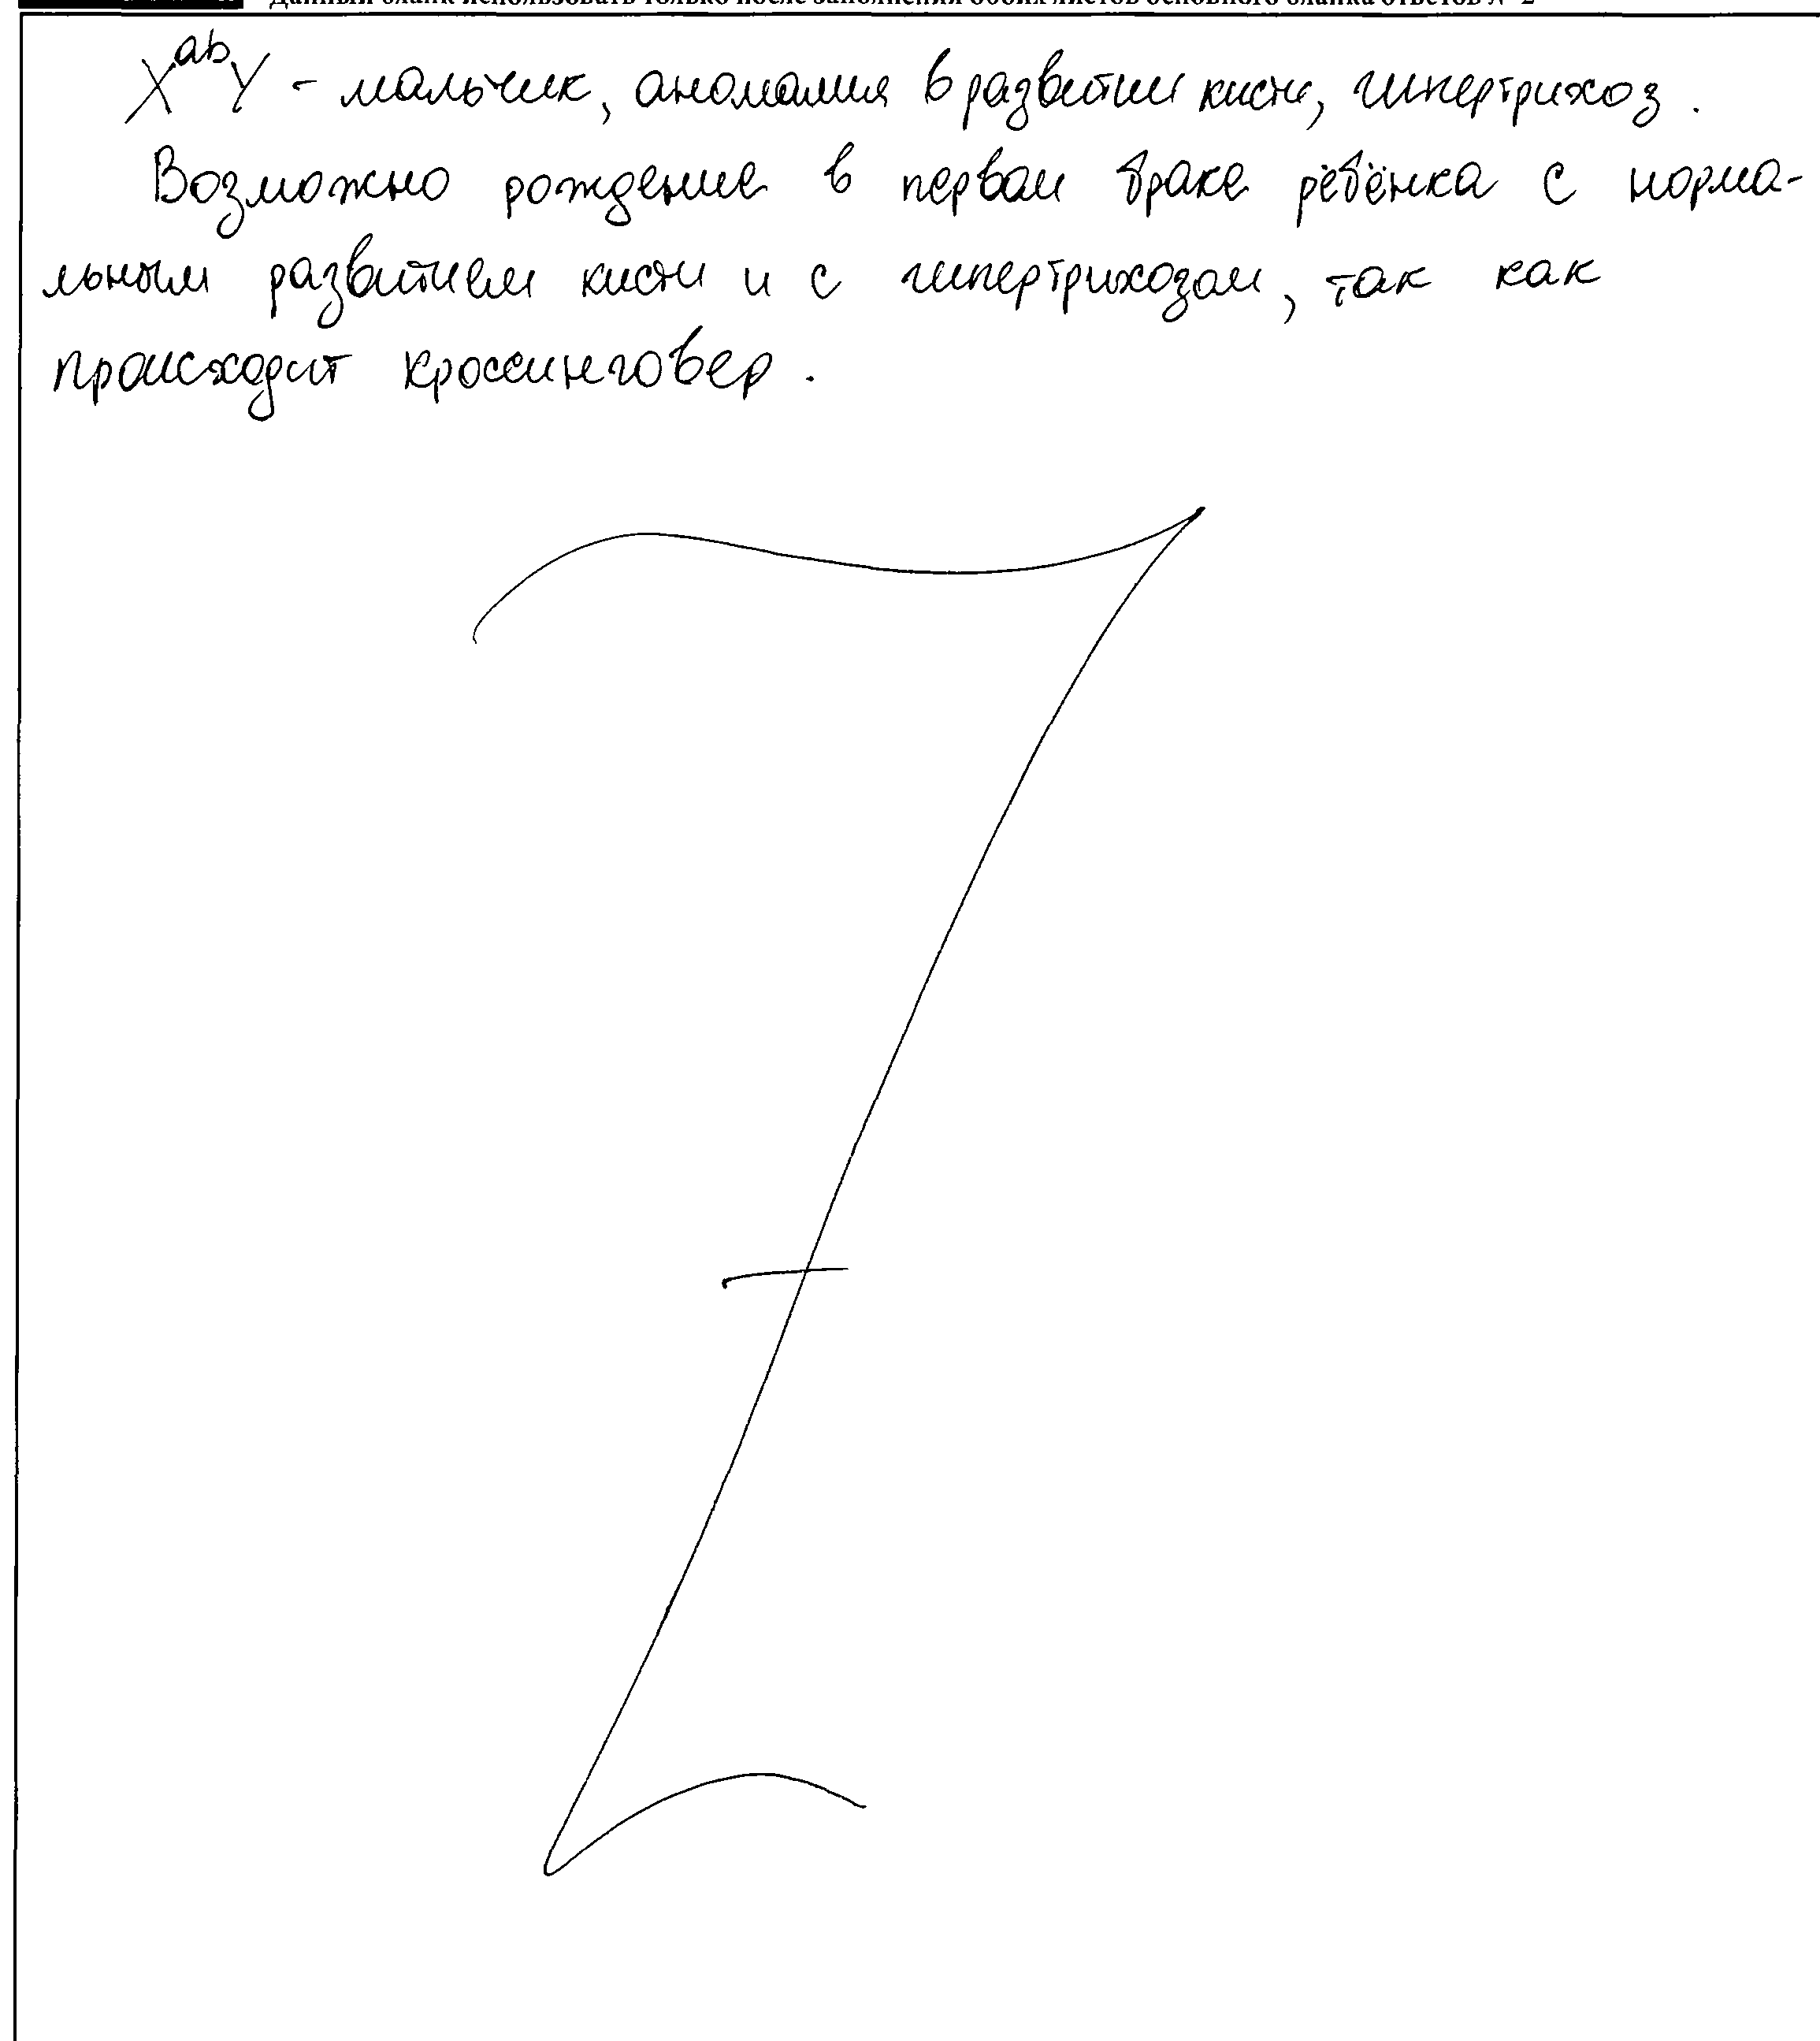 Данный бланк использовать только после заполнения обоих листов основного бланка ответов № 2
XᵃᵇY - мальчик, аномалия в развитии кисти, гипертрихоз.
Возможно рождение в первом браке ребёнка с норма-
льным развитием кисти и с гипертрихозом, так как
происходит кроссинговер.
Z